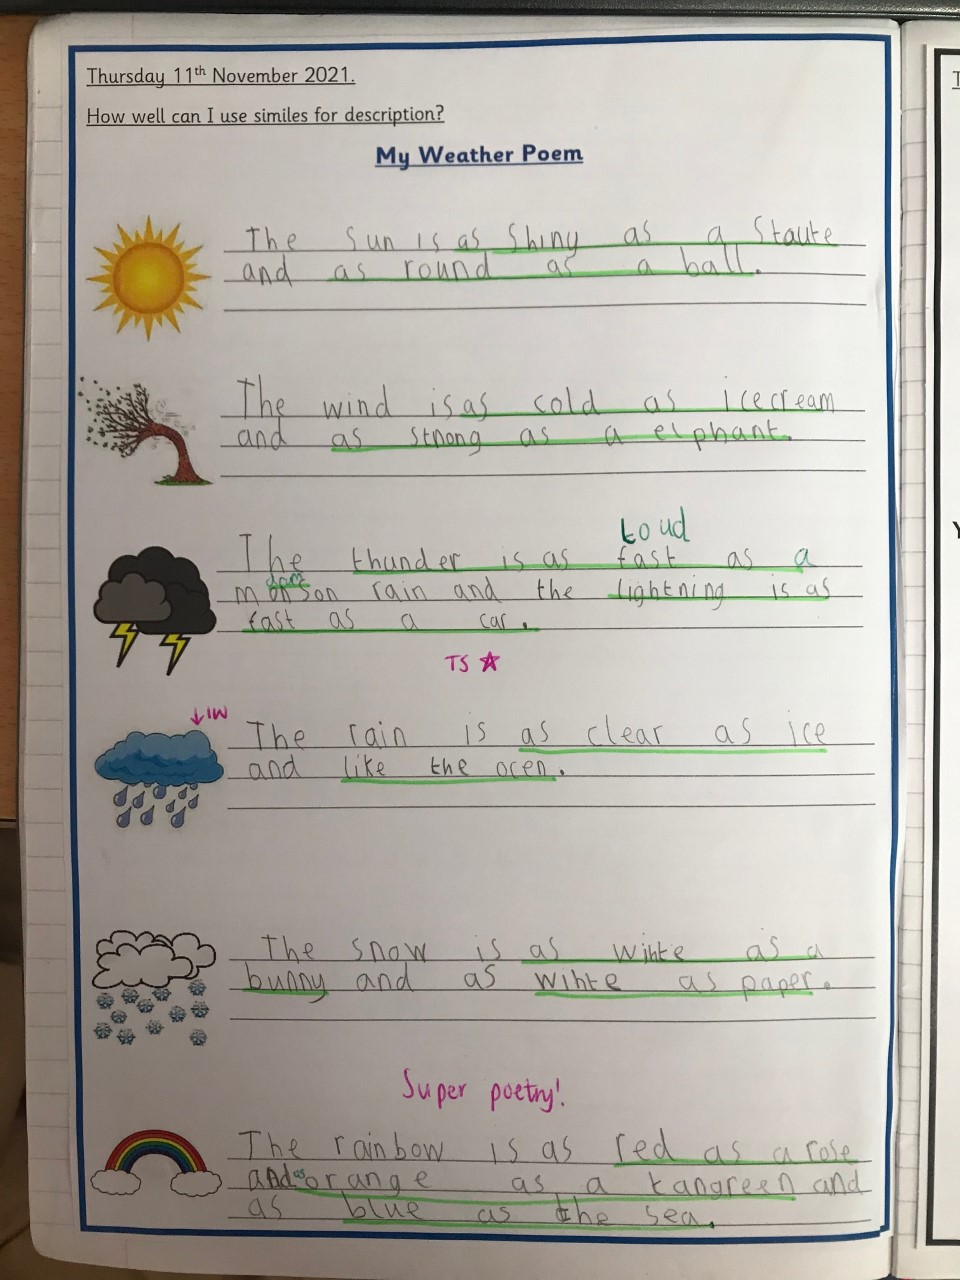 Thursday 11th November 2021.
How well can I use similes for description?
My Weather Poem
The Sun is as Shiny as a Staute
and as round as a ball.
The wind is as cold as icecream
and as strong as a elphant.
Loud
The thunder is as fast as a
monson rain and the lightning is as
fast as a car.
TS
↓IW
The rain is as clear as ice
and like the ocen.
The snow is as wihte as a
bunny and as wihte as paper.
Super poetry!
The rainbow is as red as a rose
and as orange as a tangreen and
as blue as the sea.